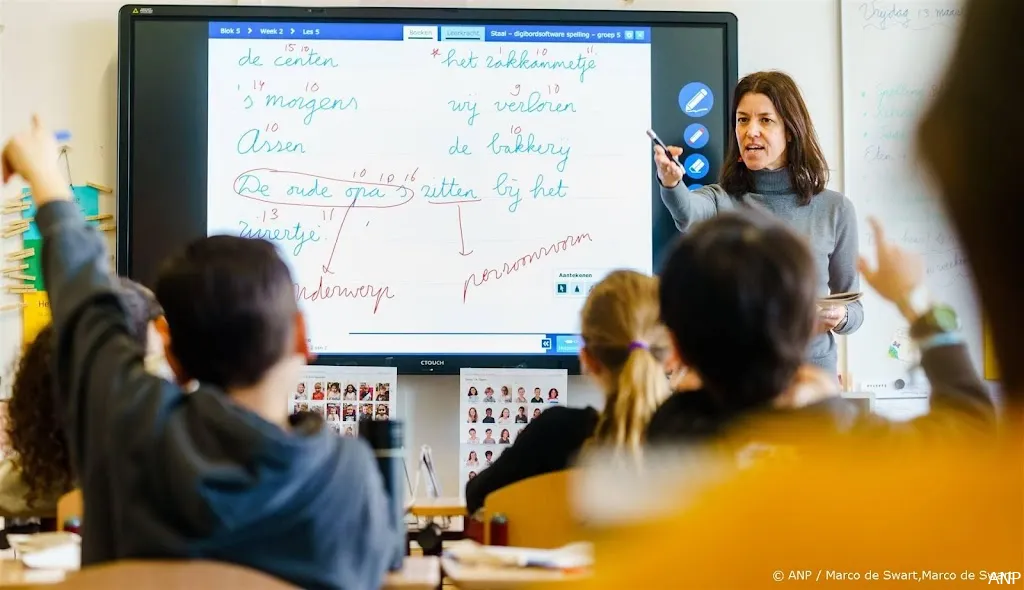 Blok 5 > Week 2 > Les 5 Boeken Leerkracht Staal - digibordsoftware spelling - groep 5
15 10 1 10 11
de centen * het zakkammetje
14 10 9 10
's morgens wij verloren
10 10
Assen de bakkerij
10 10 16
De oude opa's zitten bij het
13 11
vuurtje.
persoonsvorm
Aantekenen
CTOUCH
Vrijdag 13
© ANP / Marco de Swart,Marco de Swart
ANP